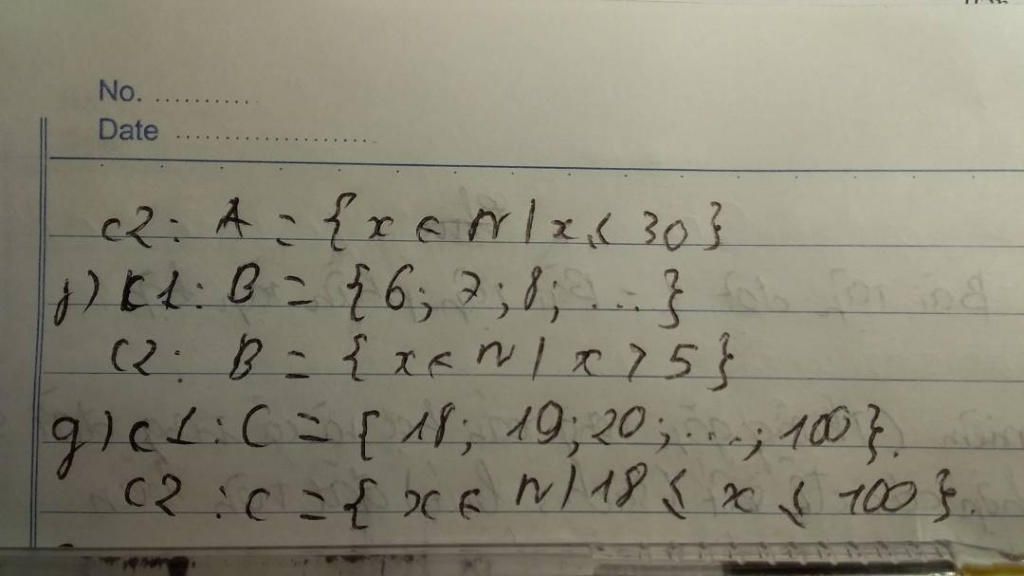 No. ...........
Date ......................
C2: A = {x ∈ N | x ≤ 30}
f) C1: B = {6; 7; 8; ...}
C2: B = {x ∈ N | x > 5}
g) C1: C = {18; 19; 20; ...; 100}.
C2: C = {x ∈ N | 18 ≤ x ≤ 100}.